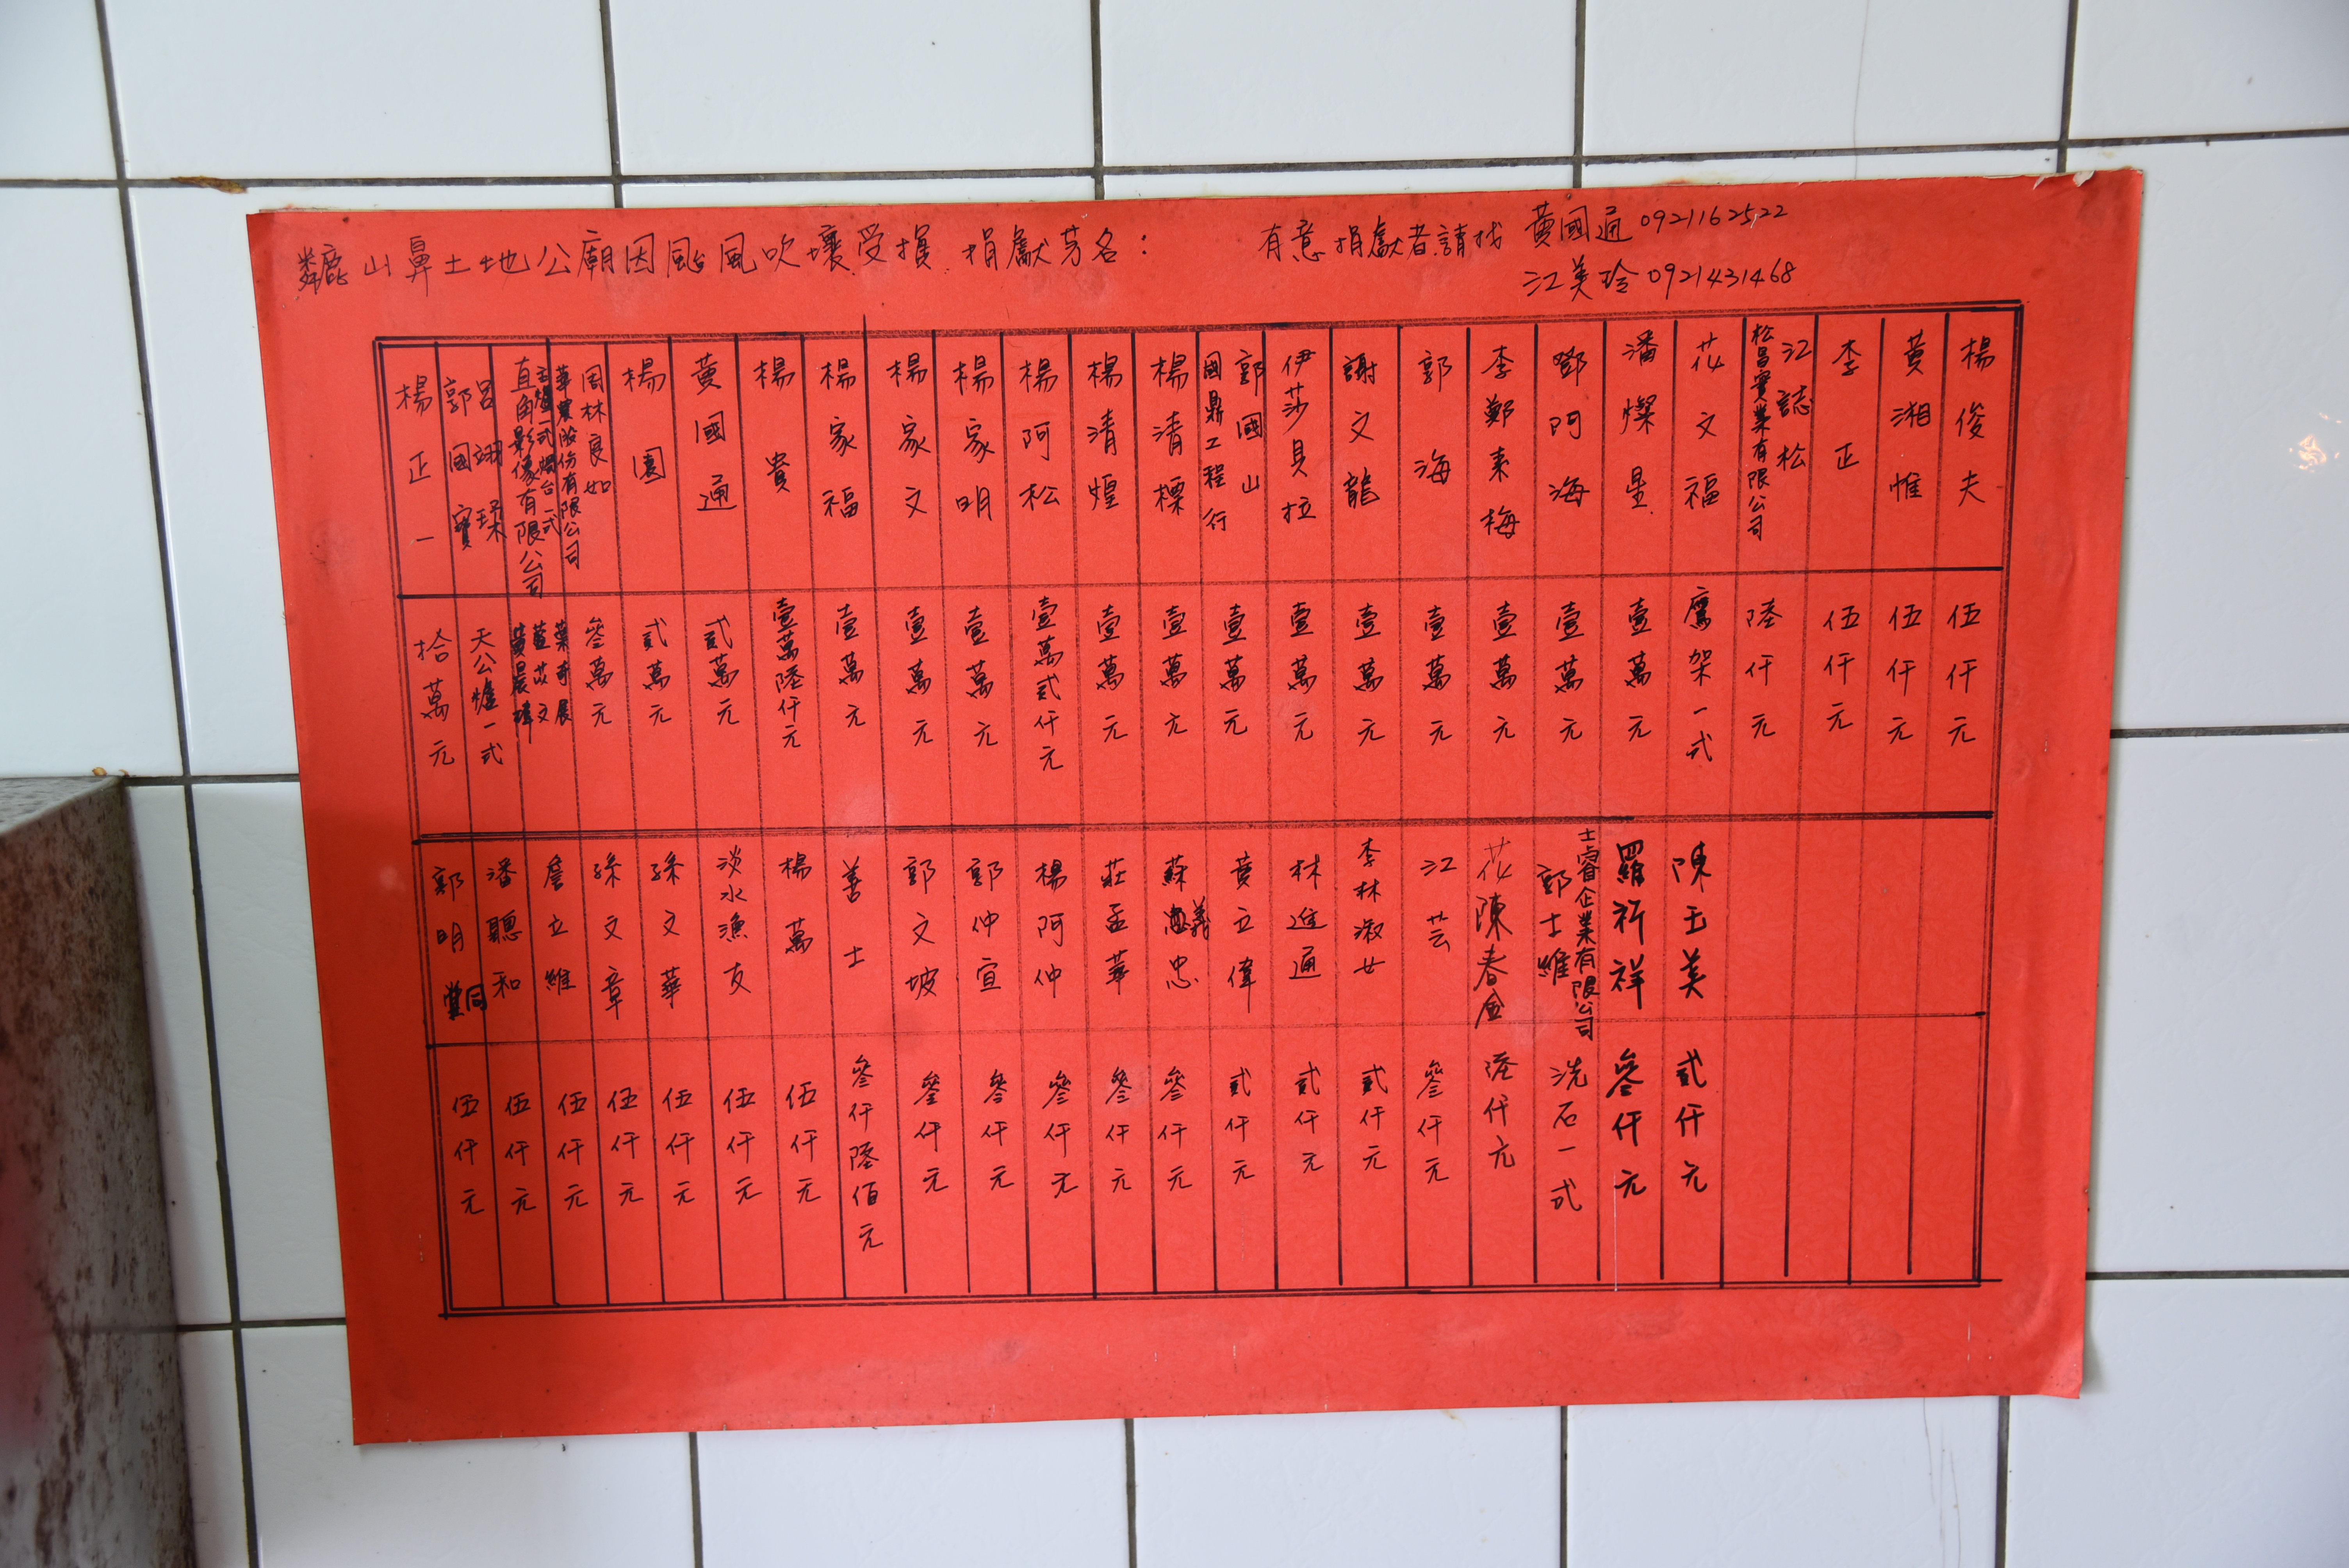 麟山鼻土地公廟因颱風吹壞受損 捐獻芳名：
有意捐獻者請找 黃國通 0921162522
江美玲 0921431468
楊正一 拾萬元
郭國寶 呂翊瑈 天公爐一式
直角影像有限公司 黃晨瑋
主爐一式燭台一式 藍苡文
華業股份有限公司 葉奇展
周林良如 叄萬元
楊園 貳萬元
黃國通 貳萬元
楊貴 壹萬陸仟元
楊家福 壹萬元
楊家文 壹萬元
楊家明 壹萬元
楊阿松 壹萬貳仟元
楊清煌 壹萬元
楊清標 壹萬元
國鼎工程行 郭國山 壹萬元
伊莎貝拉 壹萬元
謝文龍 壹萬元
郭海 壹萬元
李鄭素梅 壹萬元
鄧阿海 壹萬元
潘燦星 壹萬元
花文福 鷹架一式
松昌實業有限公司 江誌松 陸仟元
李正 伍仟元
黃湘惟 伍仟元
楊俊夫 伍仟元
郭明 伍仟元
潘聰和 伍仟元
詹立維 伍仟元
孫文章 伍仟元
孫文華 伍仟元
淡水漁友 伍仟元
楊萬 伍仟元
善士 叄仟陸佰元
郭文坡 叄仟元
郭仲宣 叄仟元
楊阿仲 叄仟元
莊孟華 叄仟元
蘇義忠 叄仟元
黃立偉 貳仟元
林進通 貳仟元
李林淑女 貳仟元
江芸 叄仟元
花陳春金 陸仟元
士睿企業有限公司 郭士維 洗石一式
羅祈祥 叄仟元
陳玉美 貳仟元